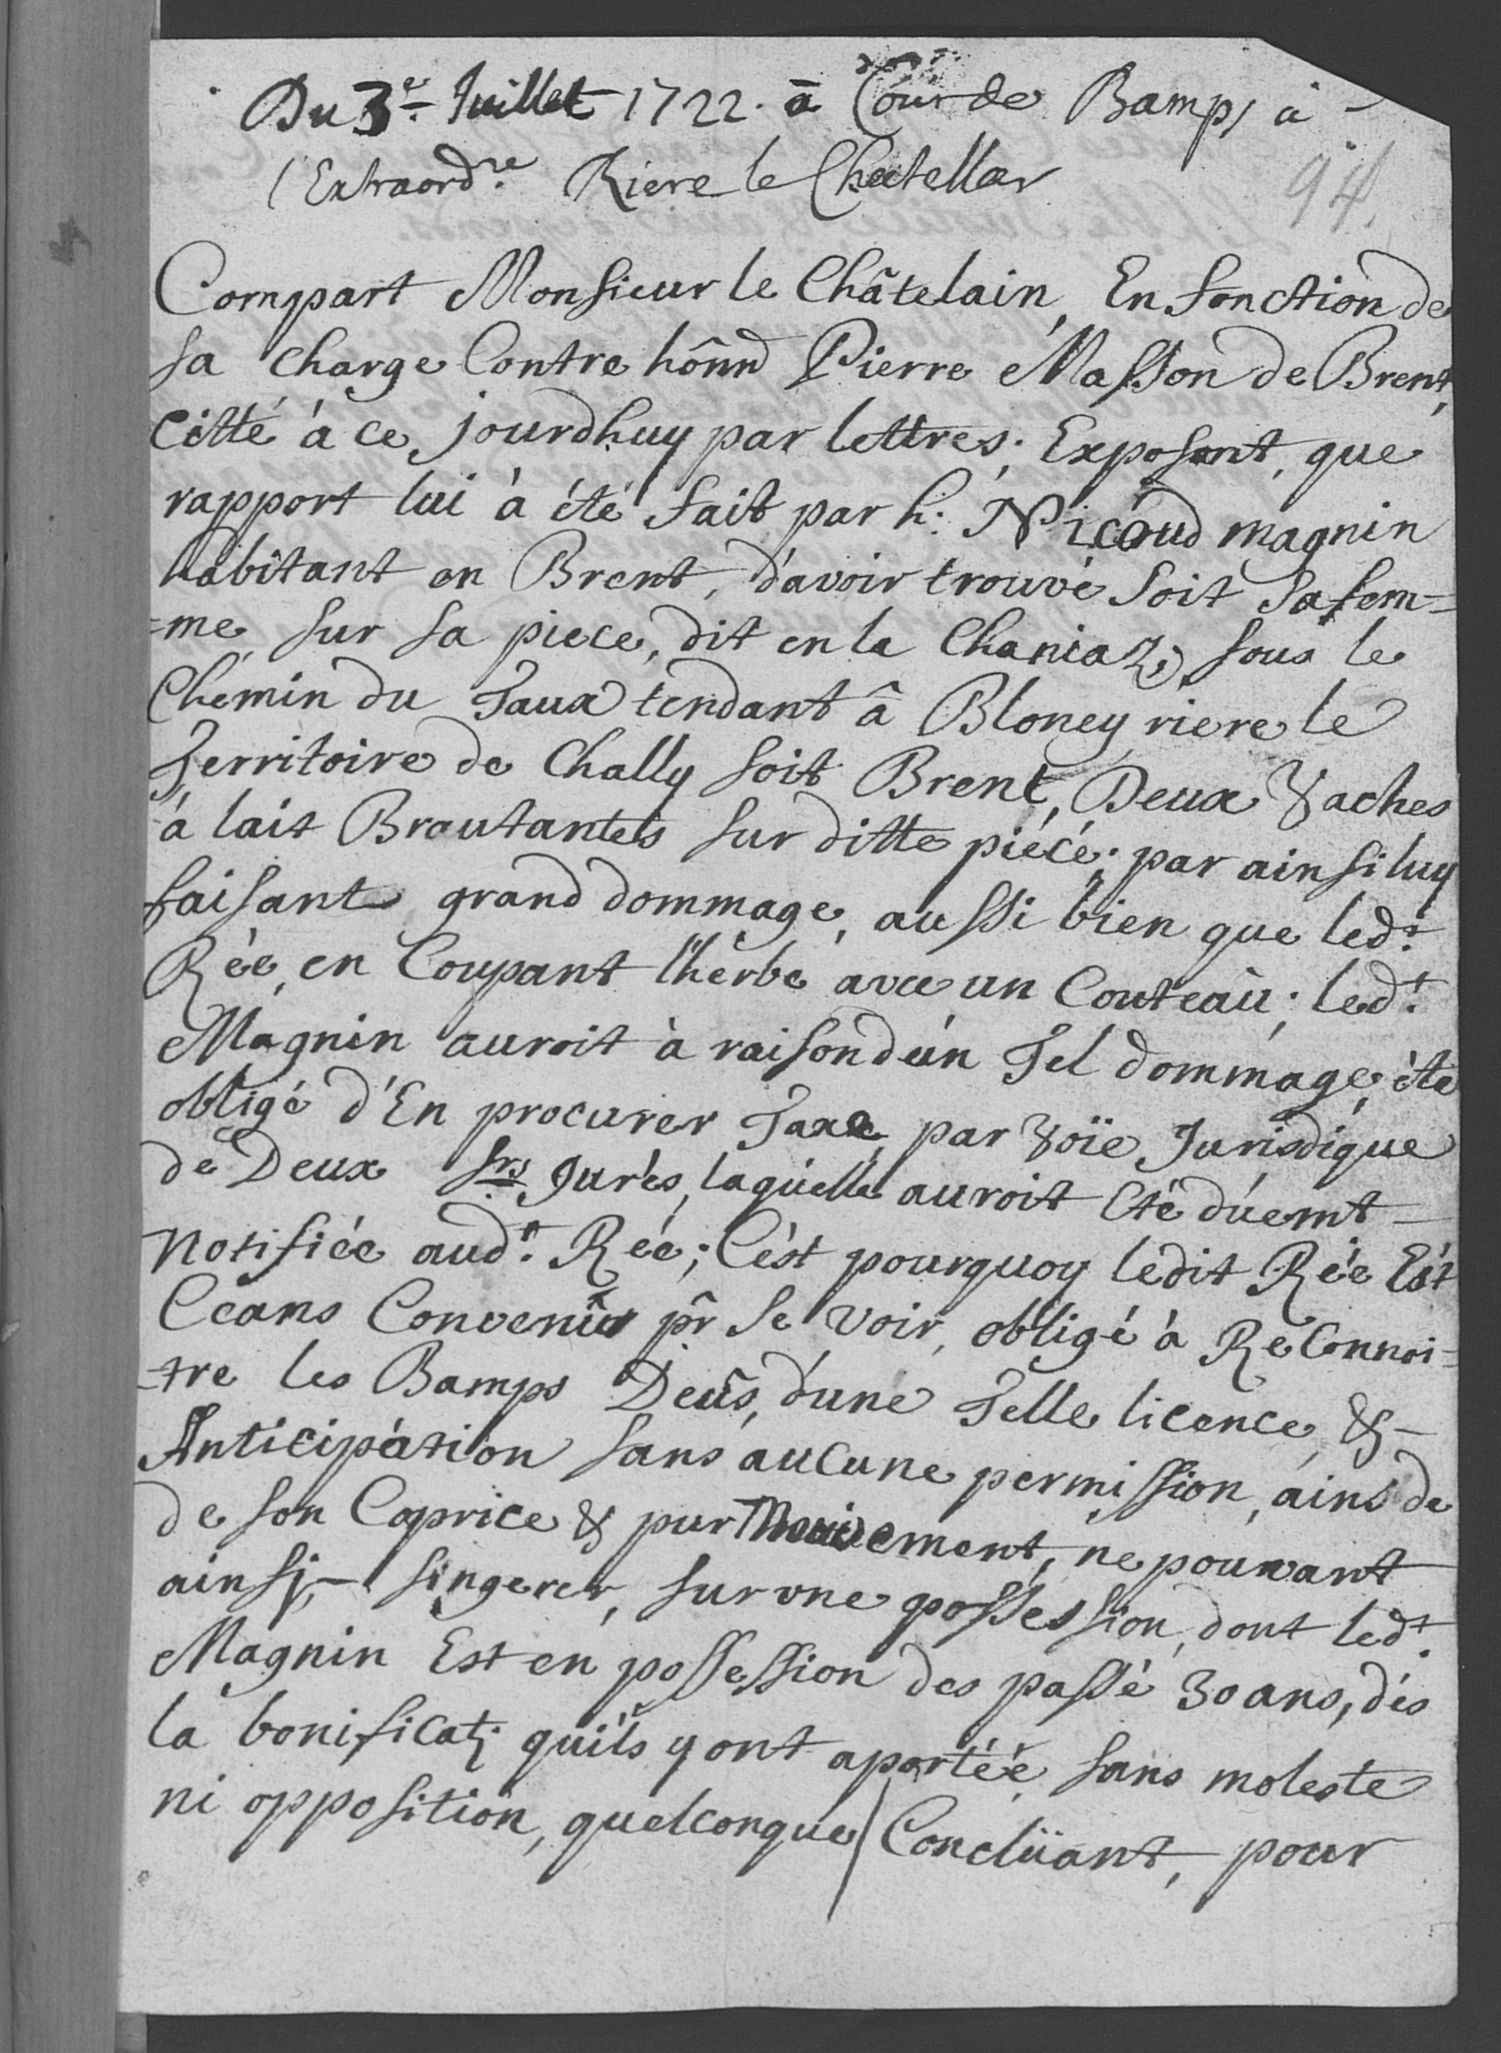 Du 3e. Juillet 1722. a Cour de Bamps à
l'Extraordre. Riere le Chatellar
94.
Compart Monsieur le Châtelain, En fonction de
sa charge Contre hônnd Pierre Masson de Brent,
Citté à ce jourdhuy par lettres; Exposant, que
rapport lui à été fait par h: Nicoud magnin
habitant en Brent, d'avoir trouvé soit sa fem=
=me, sur sa piece, dit en la Chaniaz, sous le
Chemin du Taux tendant â Bloney riere le
Territoire de Chally soit Brent, Deux Vaches
à lait Broutantes sur ditte piécé; par ainsi luy
faisant grand dommage, aussi bien que ledt.
Rée, en Coupant l'herbe avec un Couteau; ledt.
Magnin auroit à raison d'un Tel dommage, été
obligé d'En procurer Taxe, par Voïe Jurisdique
de Deux Srs Jurés, laquelle auroit Eté düemt
Notifiée audt. Rée; C'est pourquoy ledit Rée Est
Ceans Convenûs pr̂ Se voir, obligé à ReConnoi=
=tre les Bamps Deûs, d'une Telle licence, &
Anticipation sans aucune permission, ains de
de son Caprice & pur Mouvement, ne pouvant
ainsi, singerer, sur une possession, dont ledt.
Magnin Est en possession des passé 30 ans, dés
la bonificat; qu'ils y ont aportéé, sans moleste
ni opposition, quelconque / Conclüant, pour